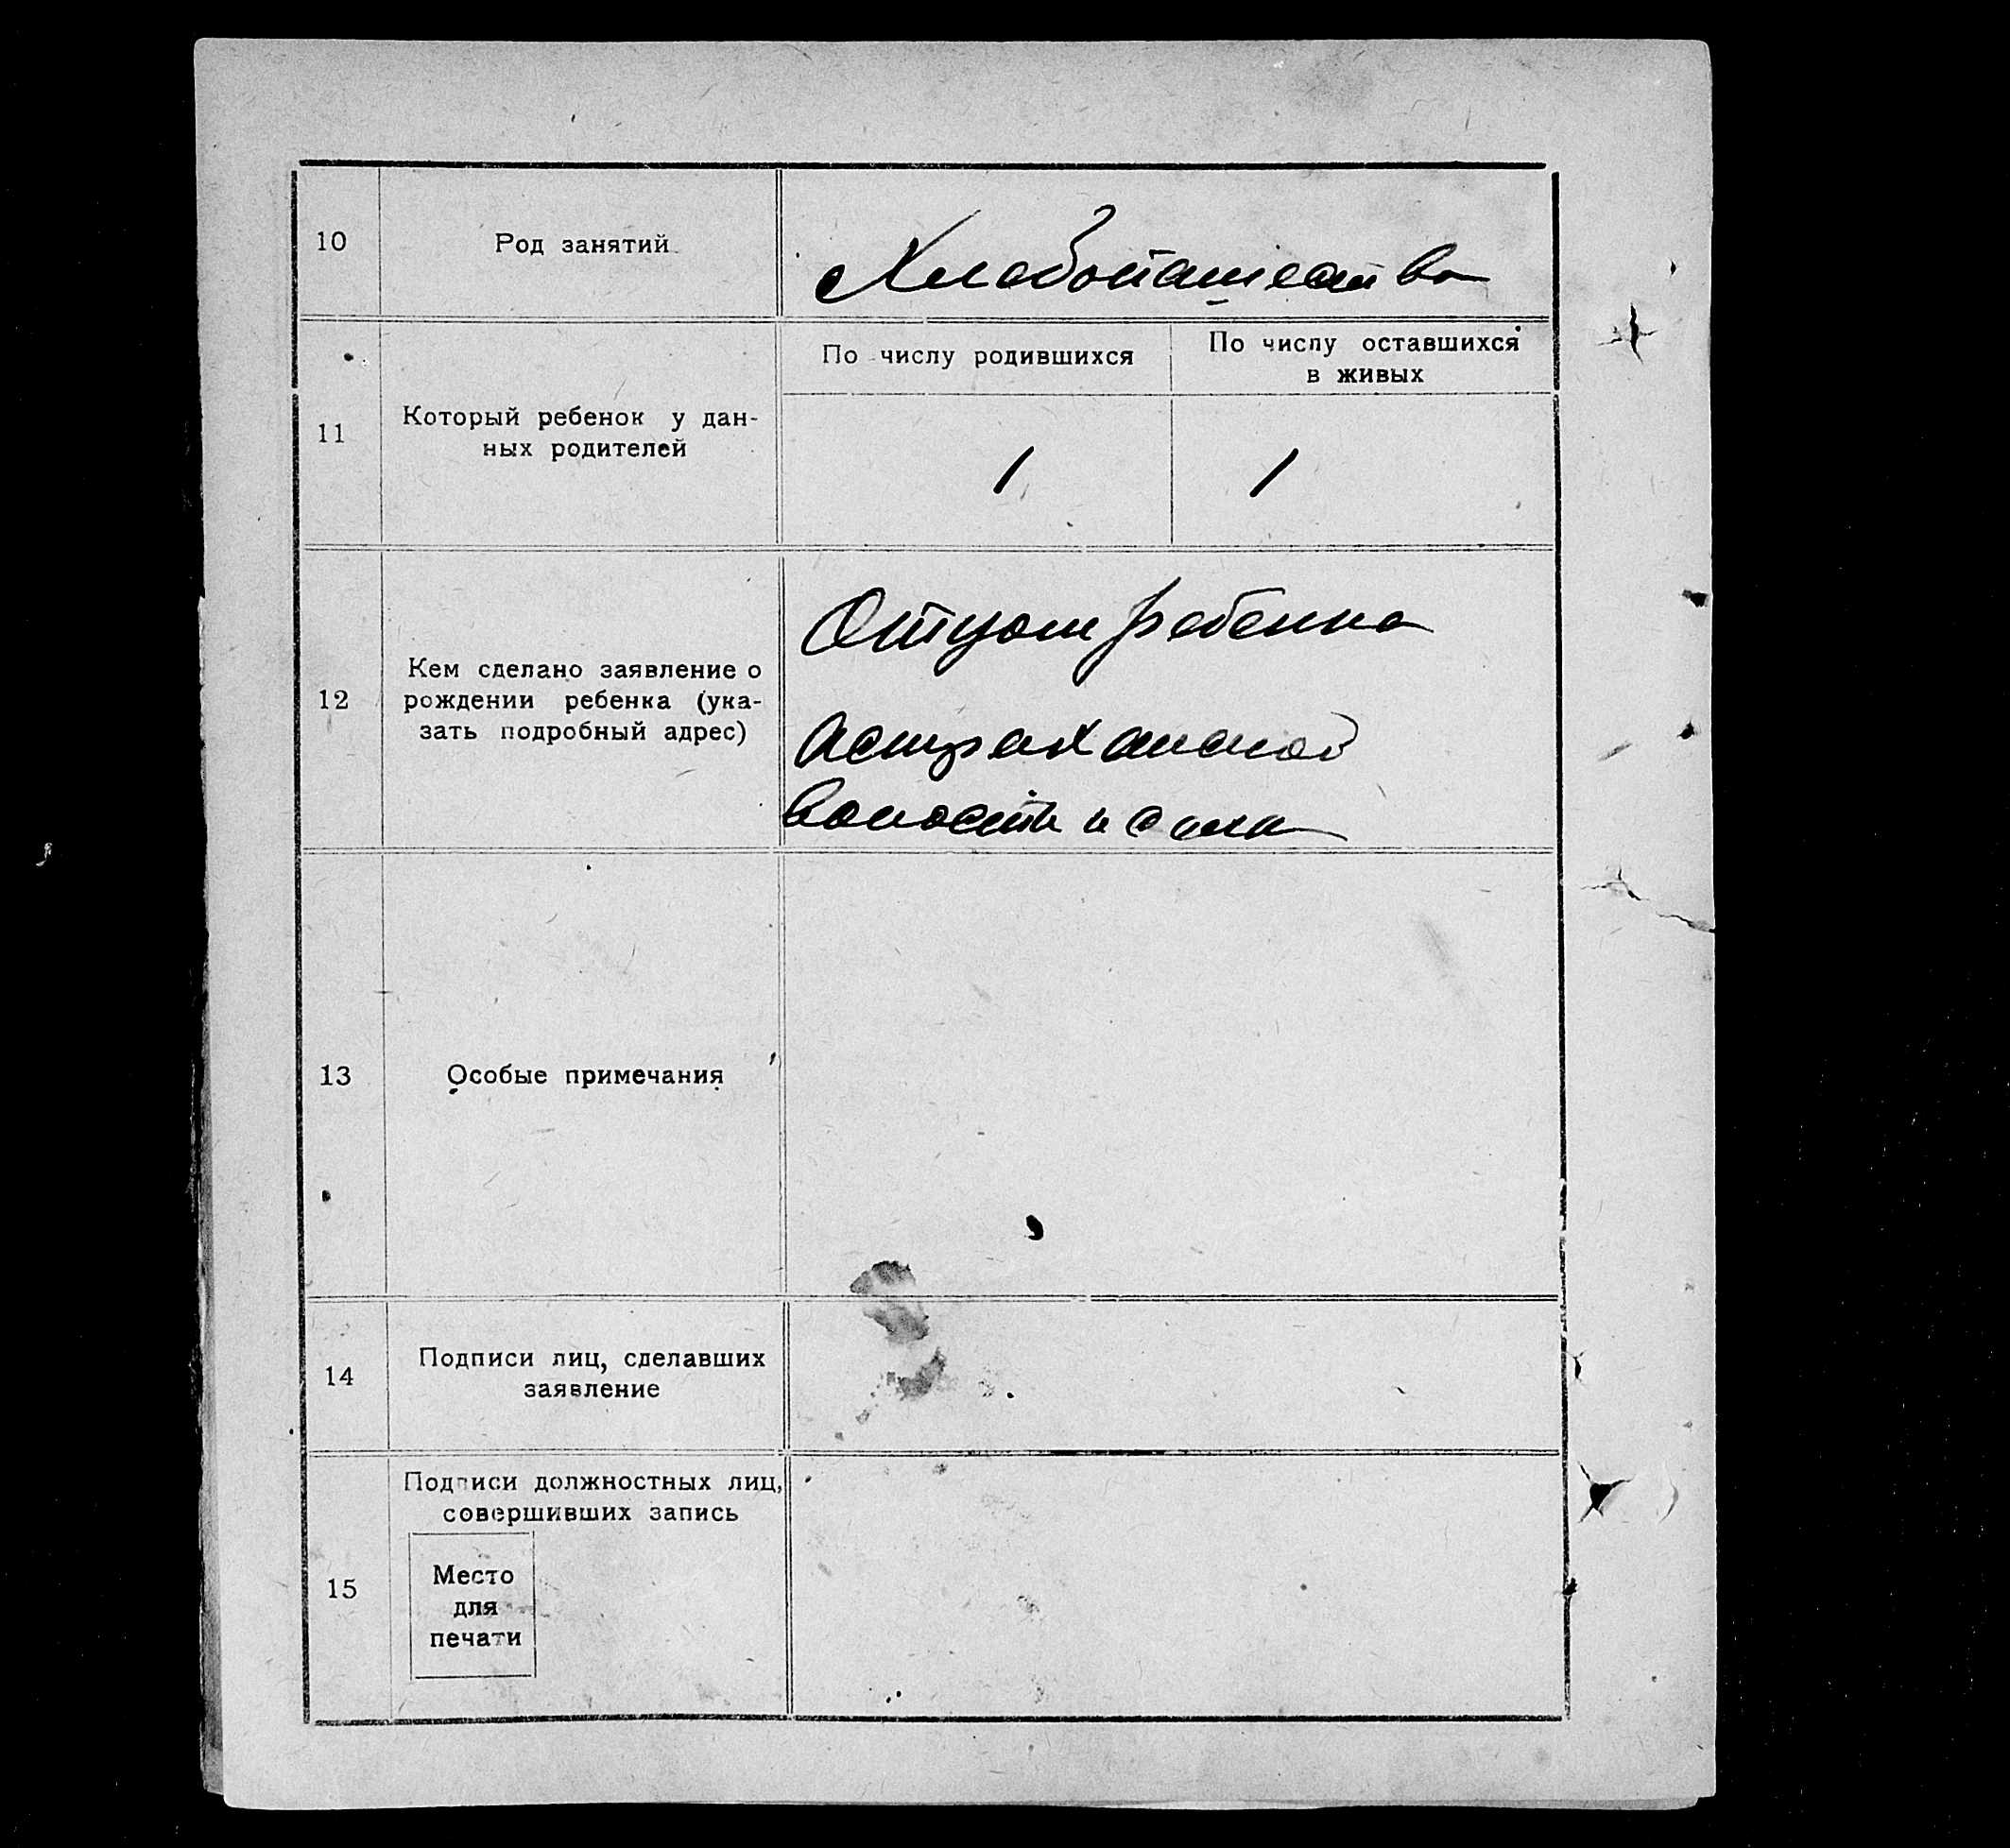 10
Род занятий
Хлебопашество
11
Который ребенок у дан-
ных родителей
По числу родившихся
По числу оставшихся
в живых
1
1
12
Кем сделано заявление о
рождении ребенка (ука-
зать подробный адрес)
Отцом ребенка
Астраханской
волости и села
13
Особые примечания
14
Подписи лиц, сделавших
заявление
15
Подписи должностных лиц,
совершивших запись
Место
для
печати